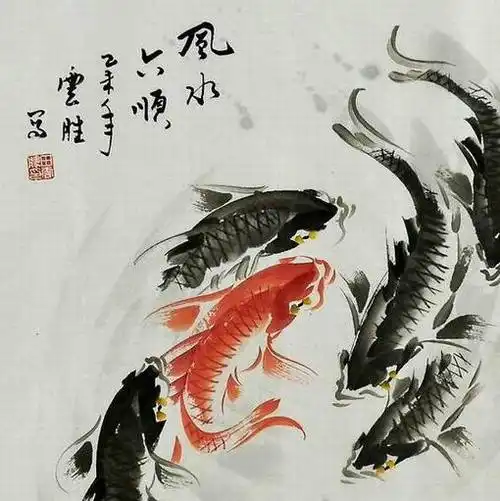 風水
六順
乙未年
雲胜
写